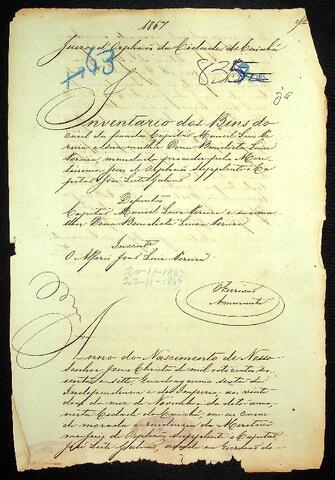 1867
Juizo d'Orphãos da Cidade de Cuiabá
43
835
Inventario dos Bens do
casal do finado Capitão Manoel Luis Pe
reira e sua mulher Dona Benedicta Luisa
Pereira, mandado proceder pelo
Juis de Orphãos Supplente o Ca
pitão José Leite
Defuntos
Capitão Manoel Luis Pereira e sua mu
lher Dona Benedicta Luisa Pereira
O Alferes José Luis Pereira
20-11-1867
23-11-1867
O Escrivão
Amarante
Anno do Nascimento de Nosso
Senhor Jesus Christo de mil oito centos ses
senta e sette, quadragesimo sexto da
Independencia e do Imperio, aos vinte
dias do mez de Novembro do dito anno
nesta Cidade de Cuiabá, em as casas
de morada e residencia do Meritissi
mo Juis de Orphãos Supplente o Capitão
José Leite